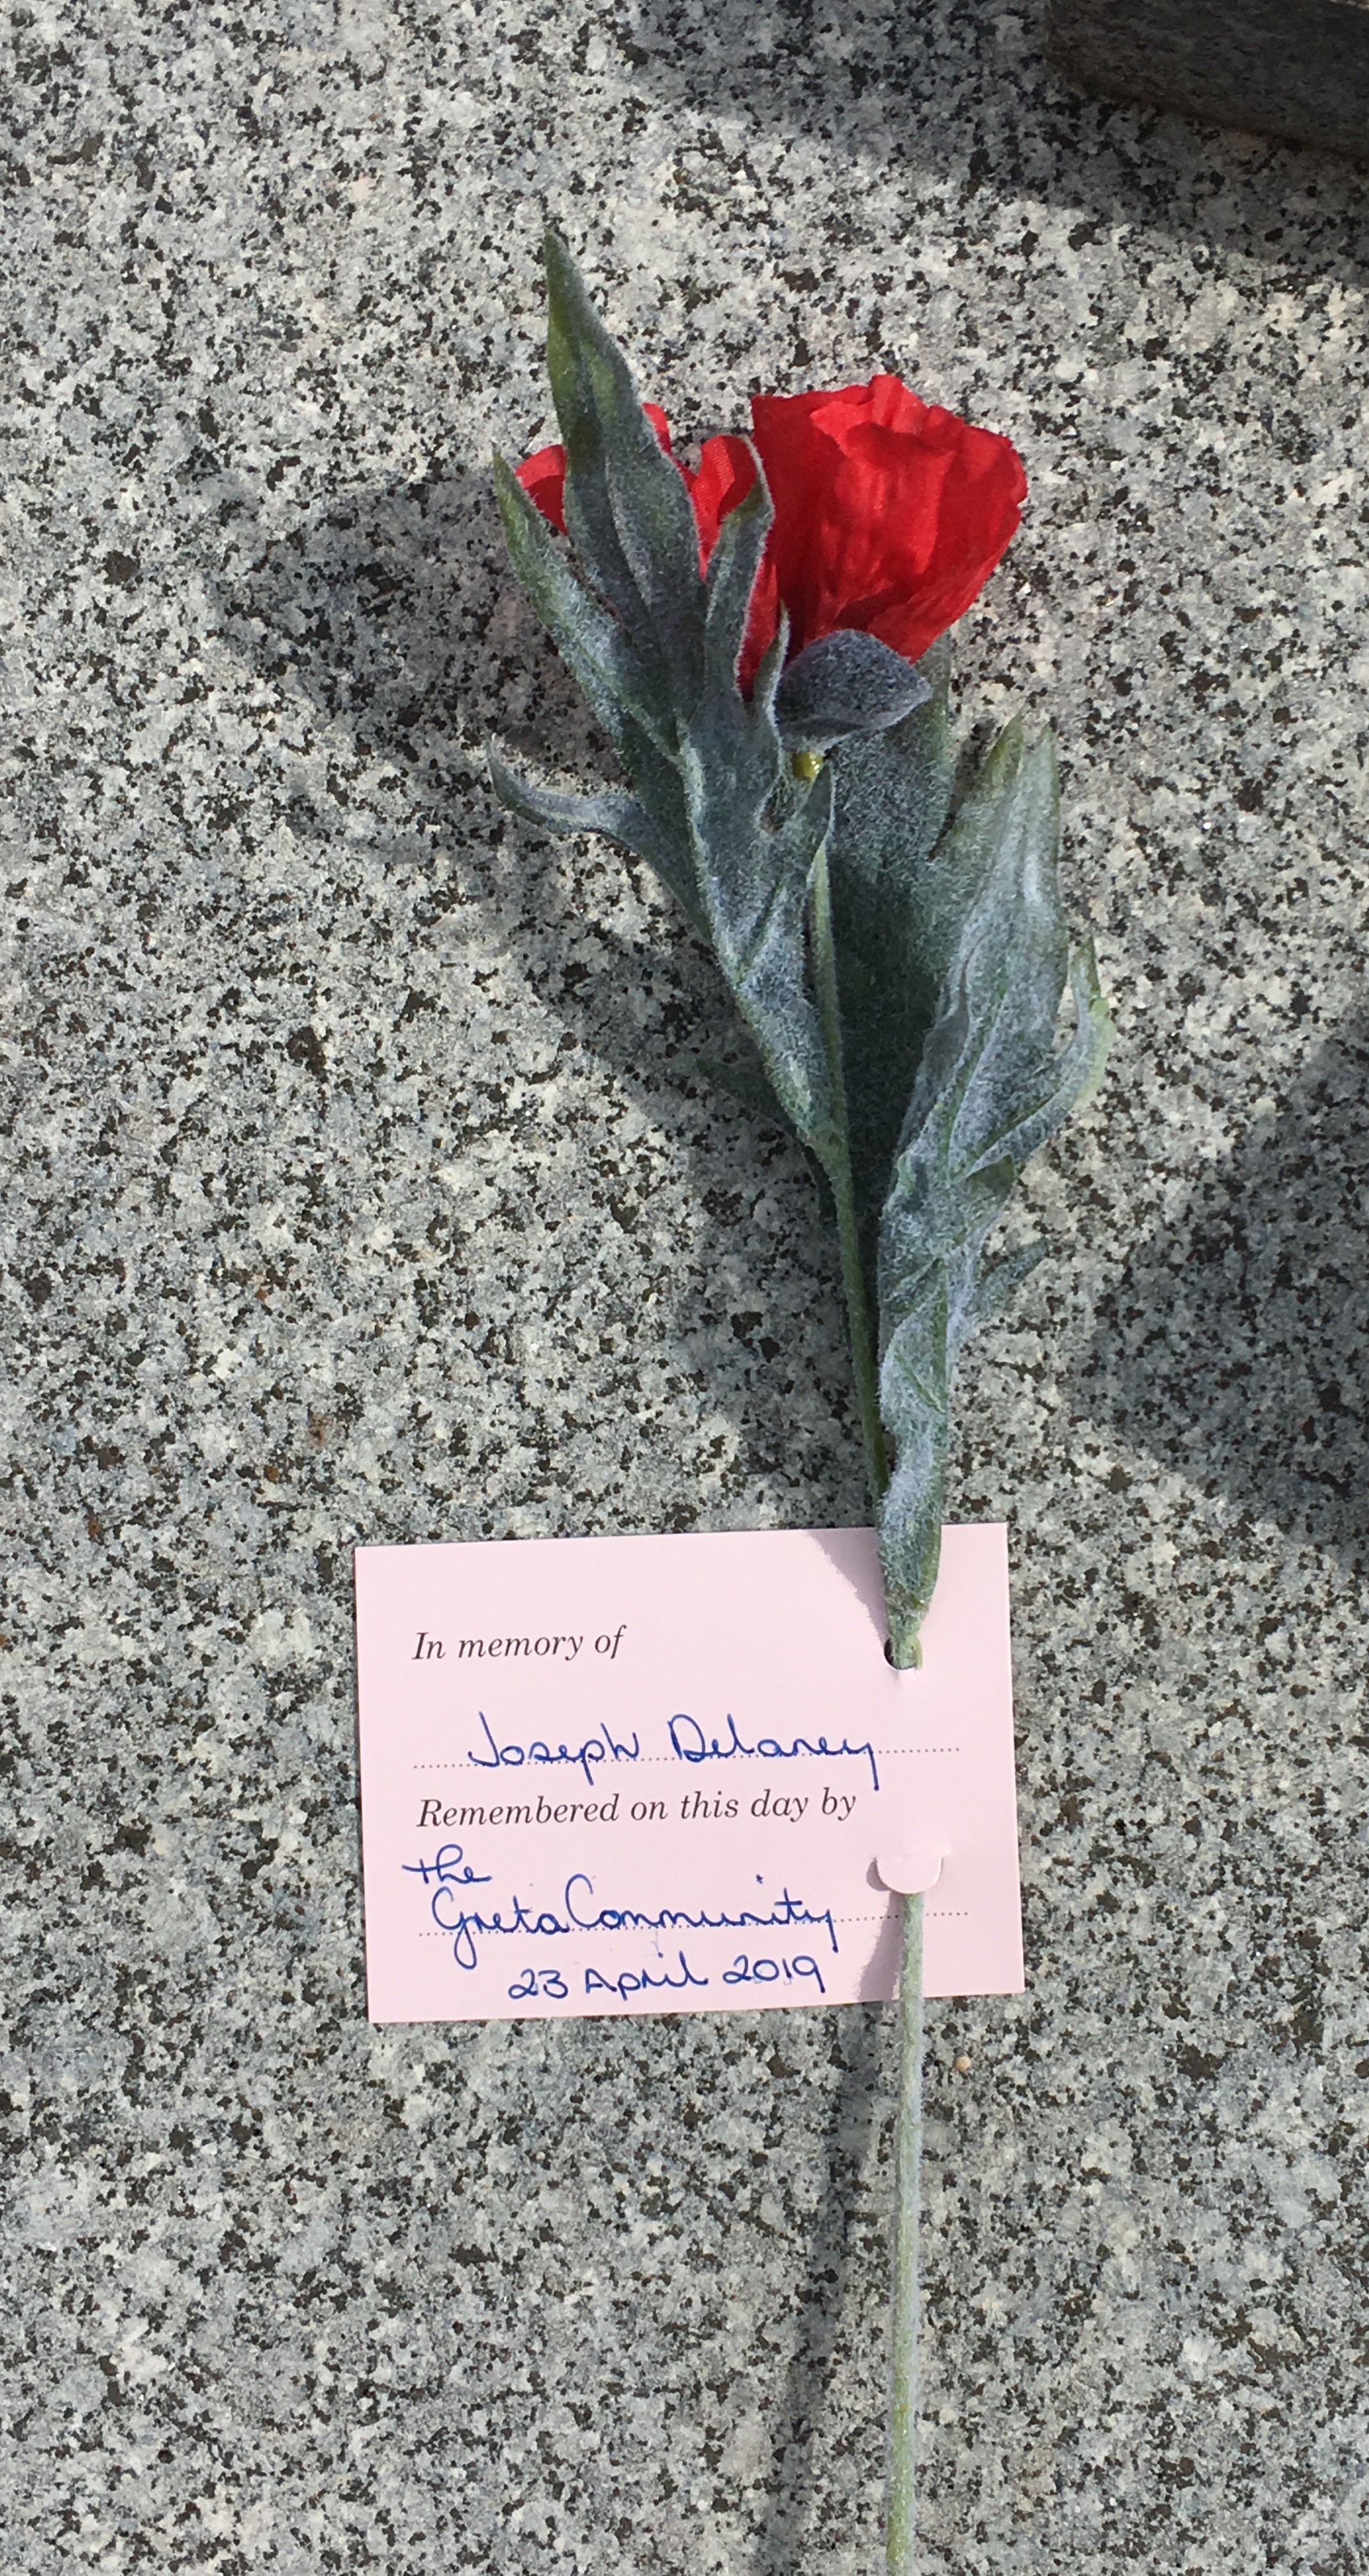 In memory of
Joseph Delaney
Remembered on this day by
the
Greta Community
23 April 2019